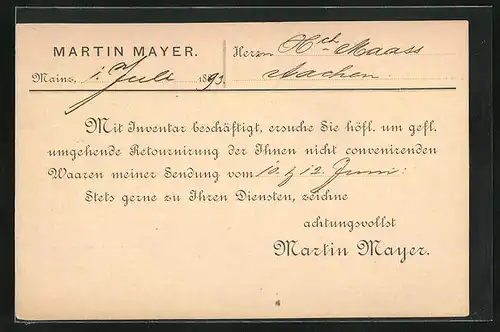 MARTIN MAYER.
Herrn Hch Maass
Mainz, 1. Juli 1893.
Aachen.
Mit Inventar beschäftigt, ersuche Sie höfl. um gefl.
umgehende Retournirung der Ihnen nicht convenirenden
Waaren meiner Sendung vom 10. & 12. Juni:
Stets gerne zu Ihren Diensten, zeichne
achtungsvollst
Martin Mayer.